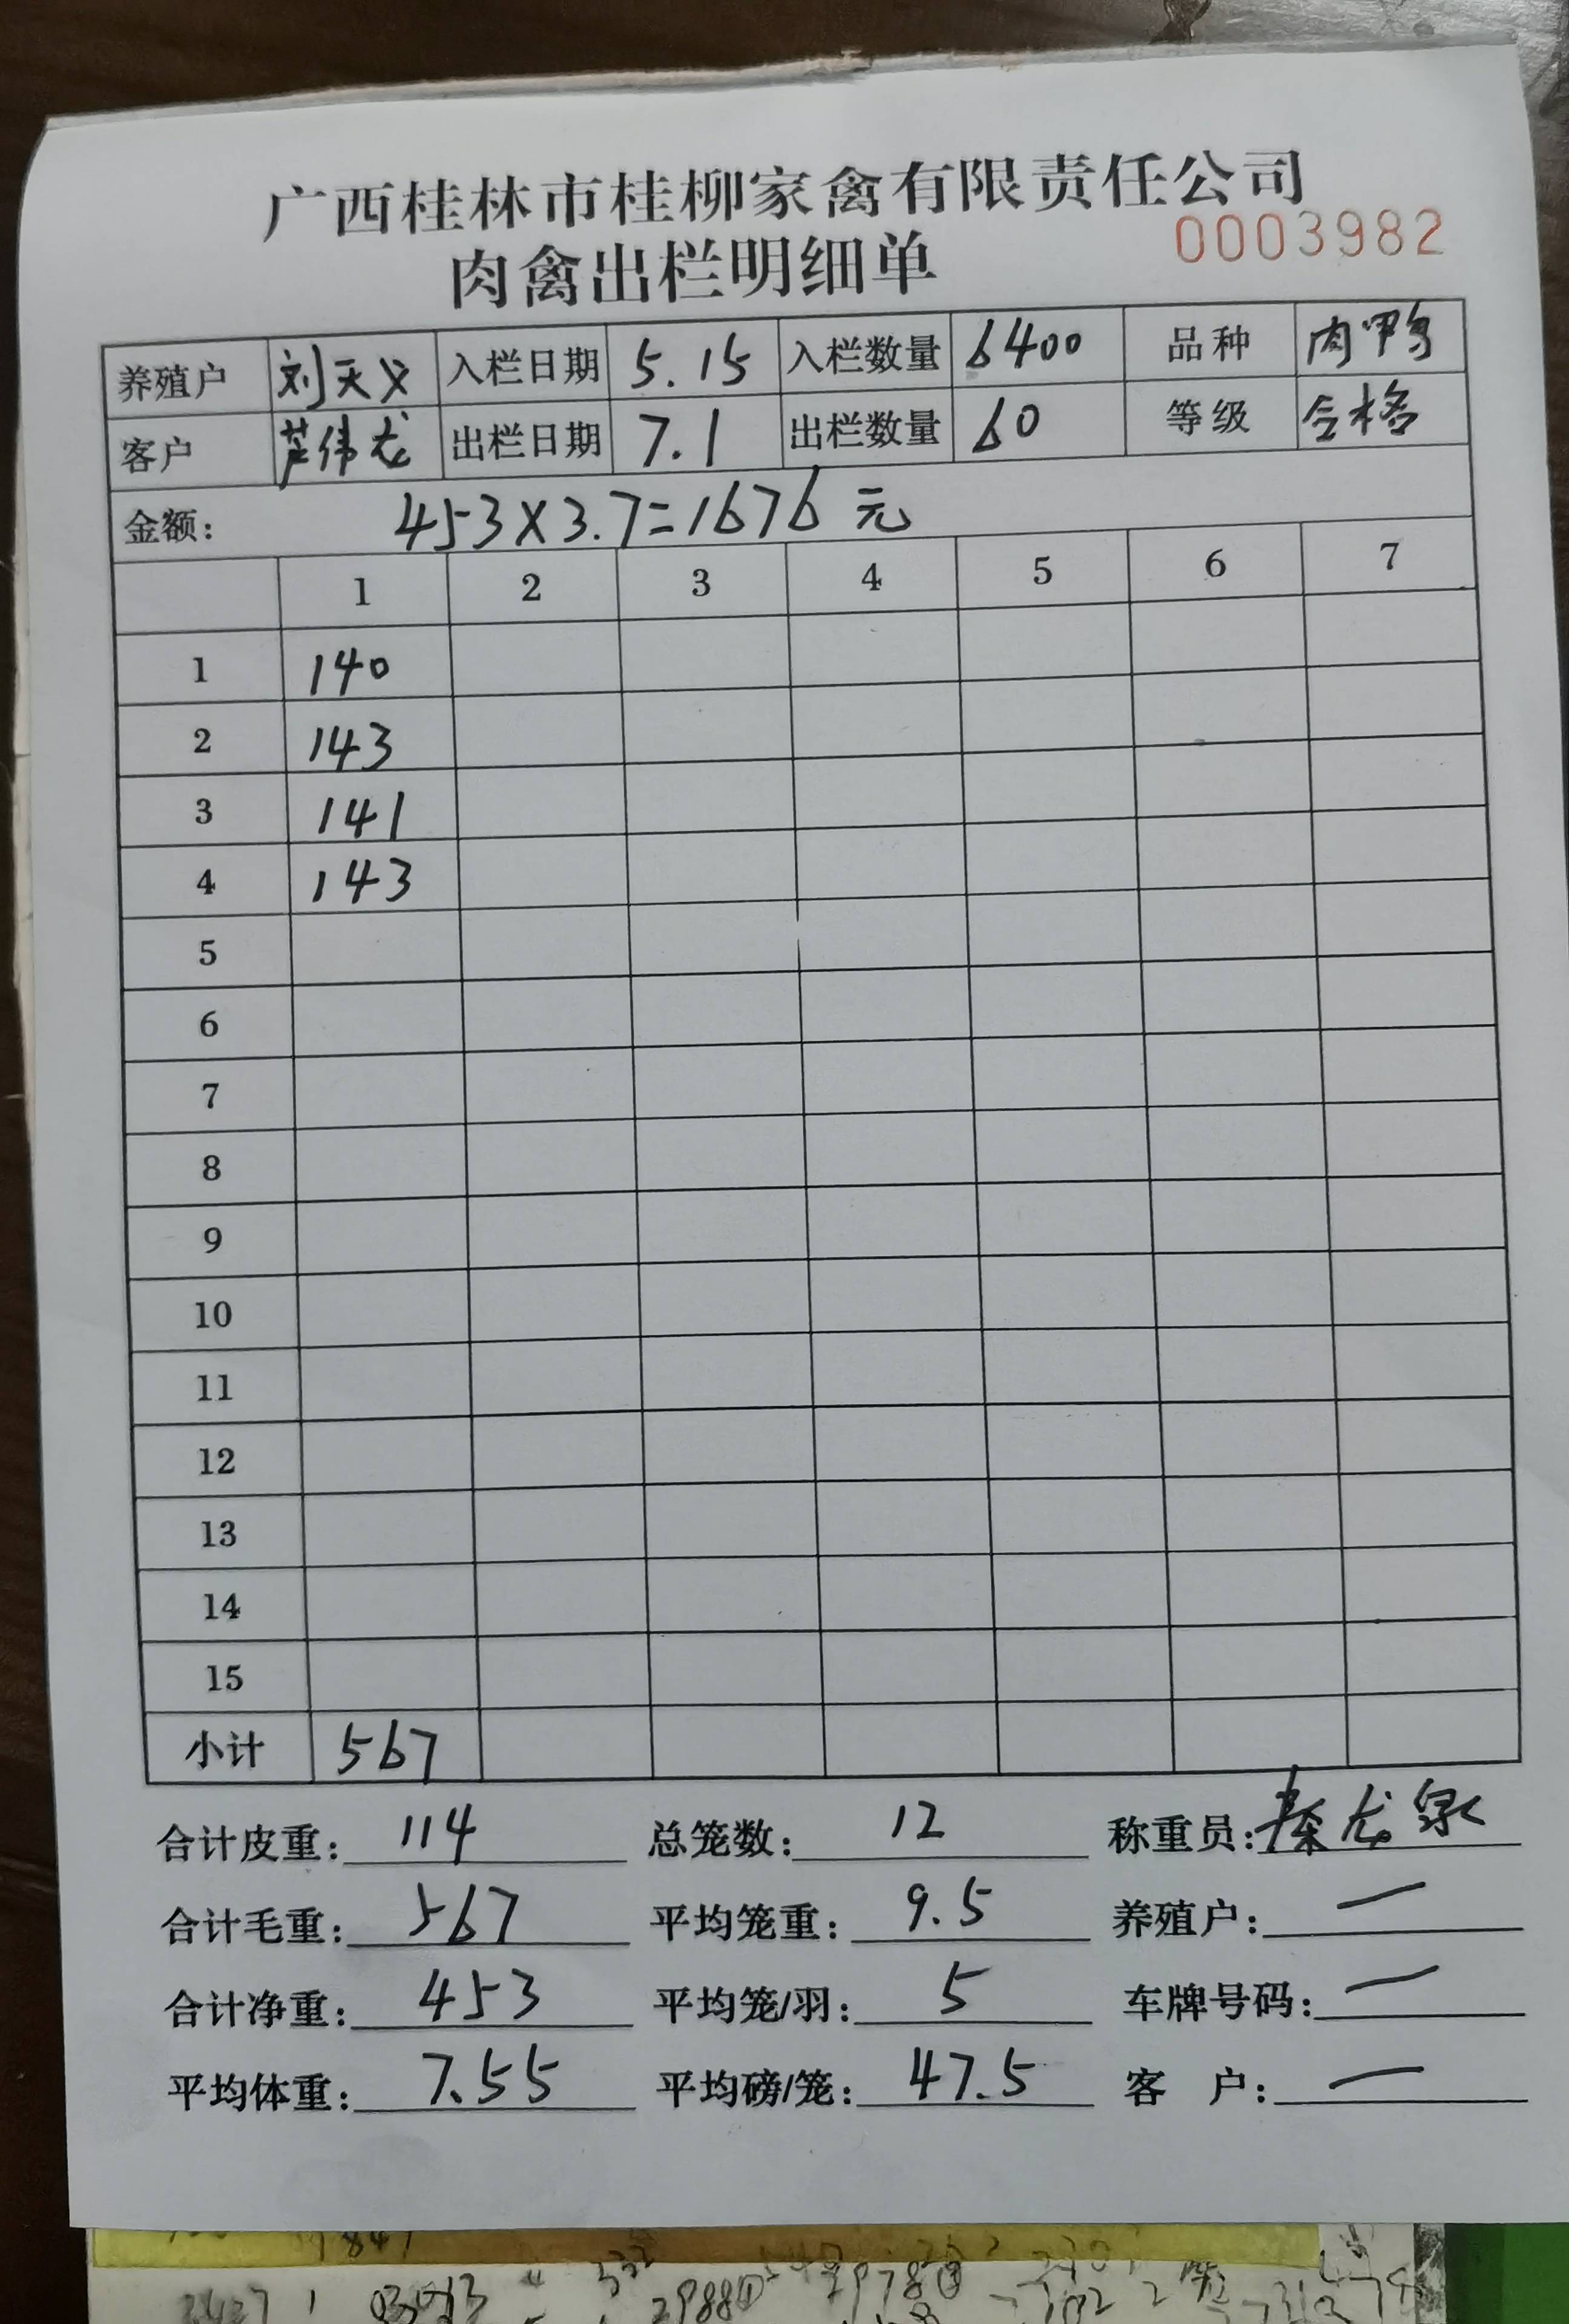 广西桂林市桂柳家禽有限责任公司
0003982
肉禽出栏明细单
养殖户 刘天义 入栏日期 5.15 入栏数量 6400 品种 肉鸭
客户 芦伟龙 出栏日期 7.1 出栏数量 60 等级 合格
金额: 453×3.7=1676元
1 2 3 4 5 6 7
1 140
2 143
3 141
4 143
5
6
7
8
9
10
11
12
13
14
15
小计 567
合计皮重: 114 总笼数: 12 称重员: 秦龙泉
合计毛重: 567 平均笼重: 9.5 养殖户: 一
合计净重: 453 平均笼/羽: 5 车牌号码: 一
平均体重: 7.55 平均磅/笼: 47.5 客户: 一